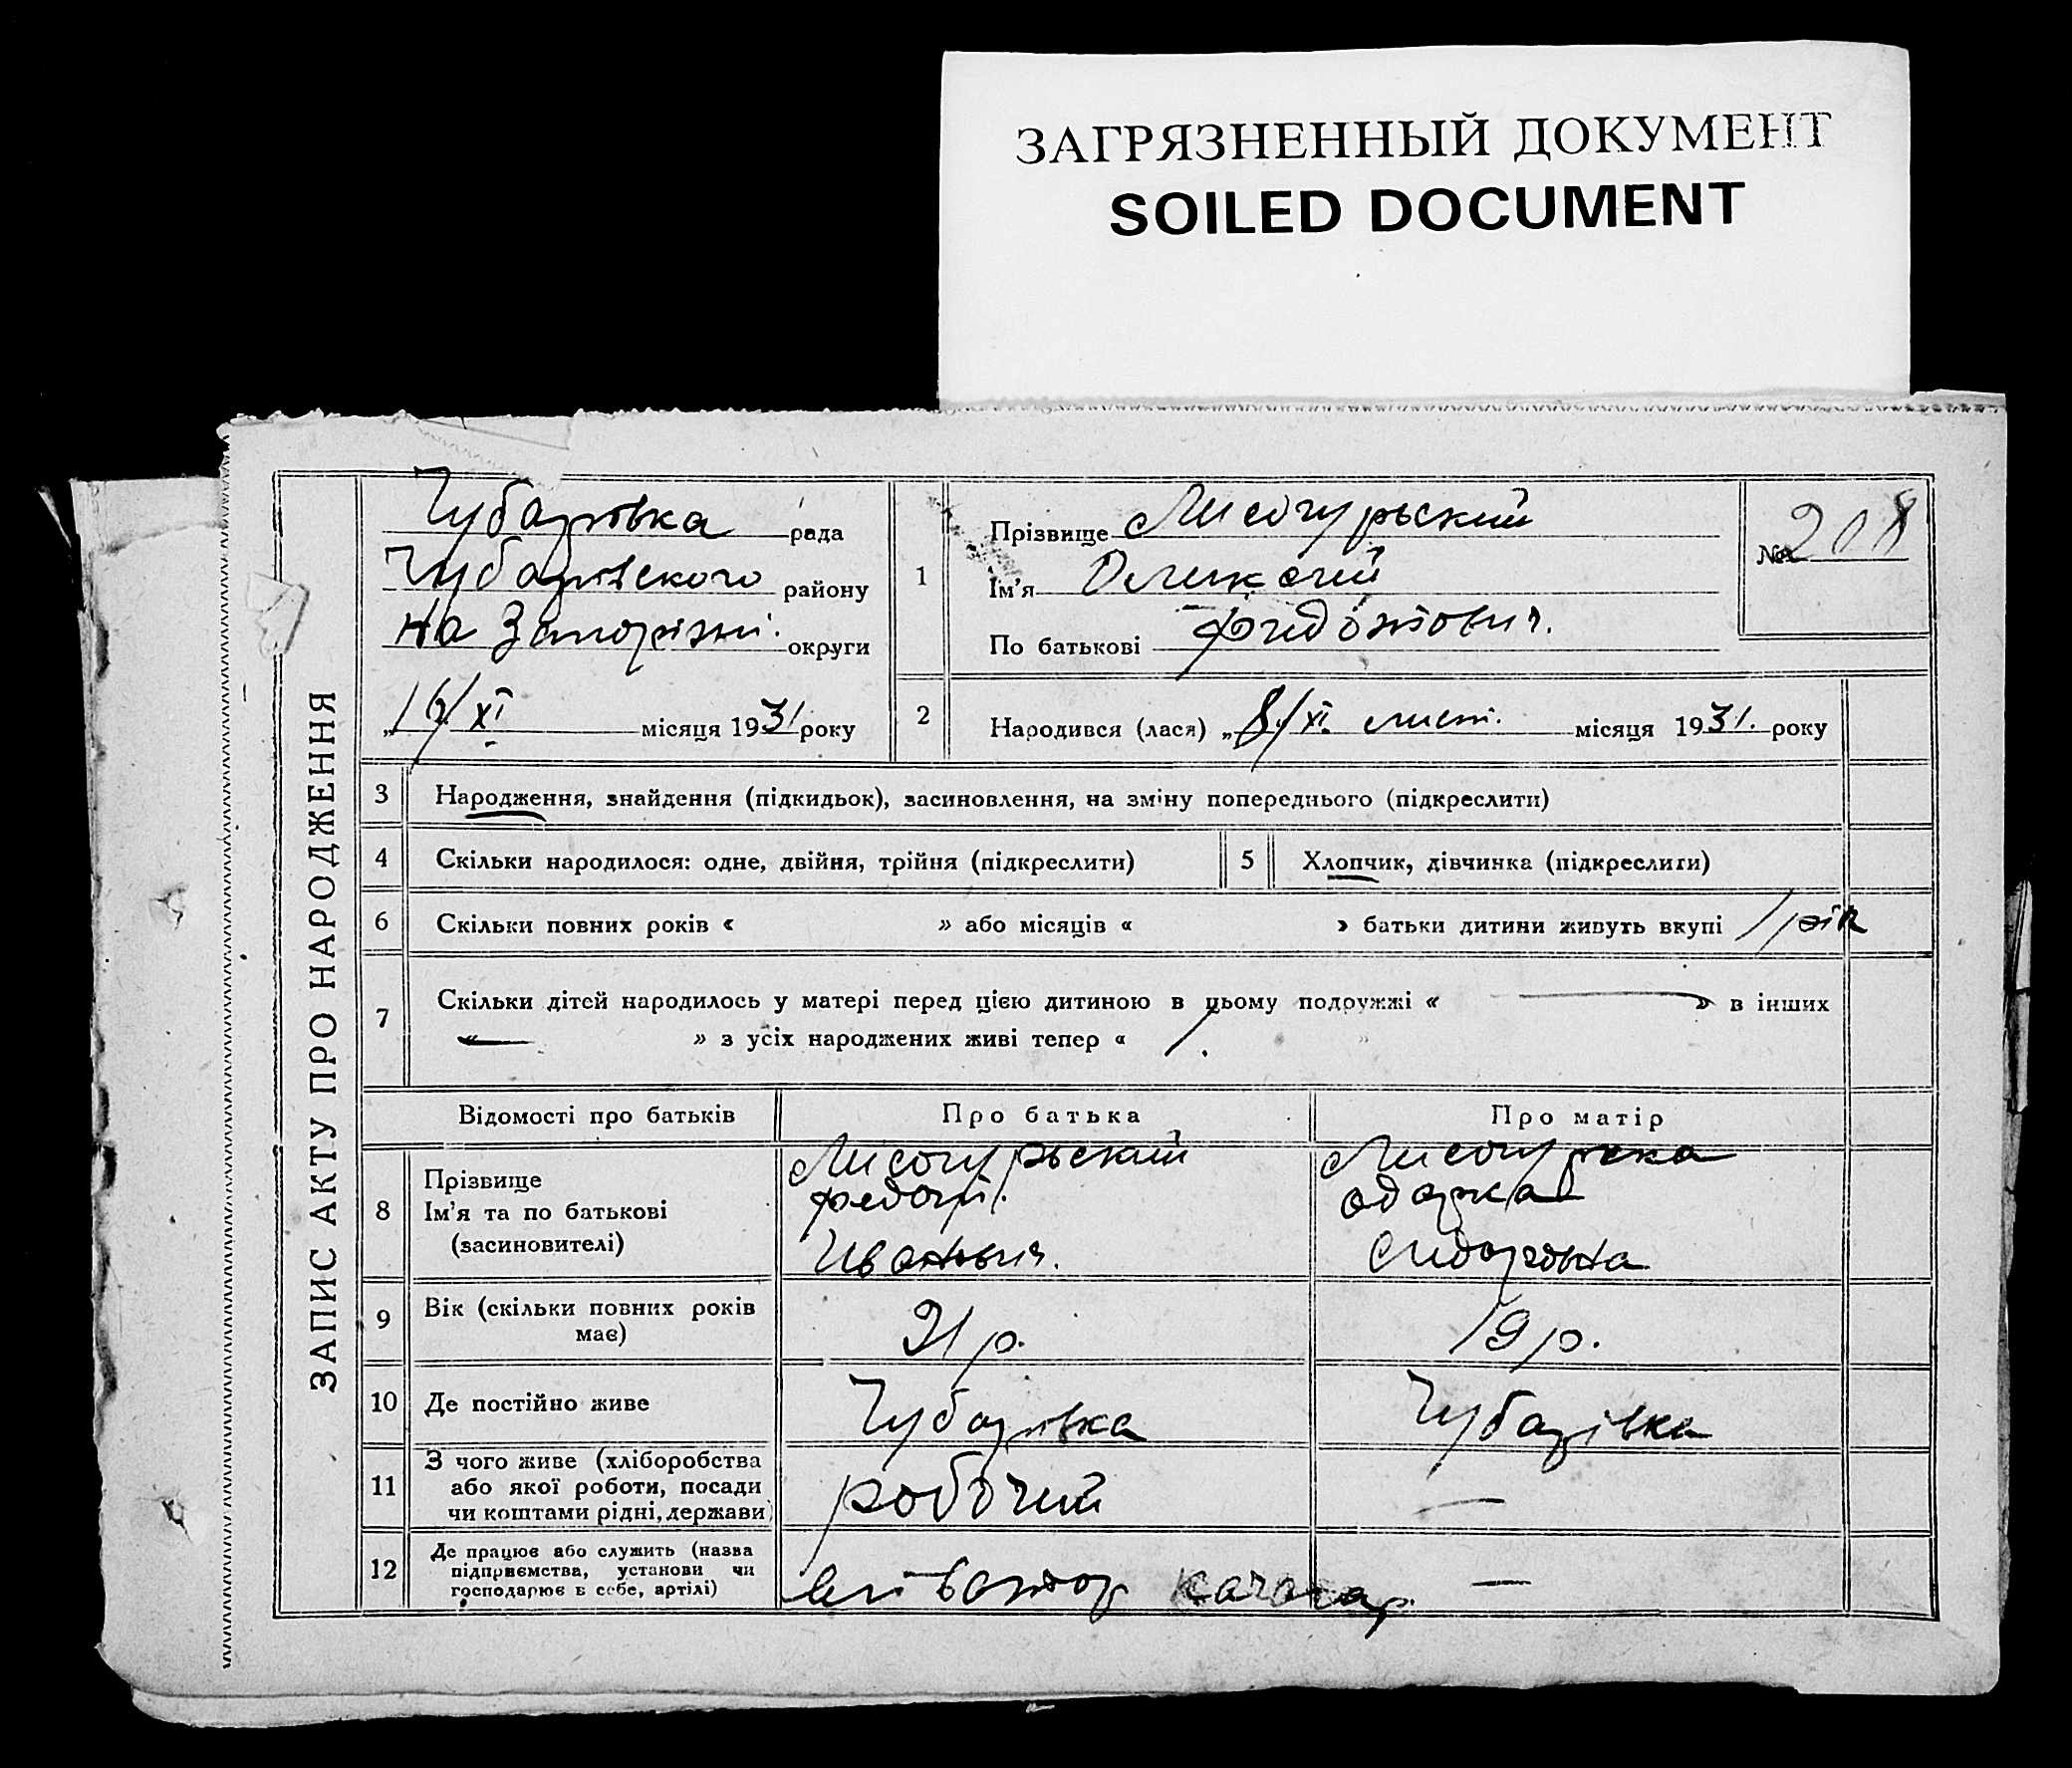 ЗАГРЯЗНЕННЫЙ ДОКУМЕНТ
SOILED DOCUMENT
ЗАПИС АКТУ ПРО НАРОДЖЕННЯ
Чубарівка рада
Чубарівского району
на Запоріжі. округи
„16/XI місяця 1931 року
1
Прізвище Лисогурьский
Ім'я
По батькові Федотович.
№ 208
2
Народився (лася) „8/XI. лист. місяця 1931. року
3 Народження, знайдення (підкидьок), засиновлення, на зміну попереднього (підкреслити)
4 Скільки народилося: одне, двійня, трійня (підкреслити)
5 Хлопчик, дівчинка (підкреслити)
6 Скільки повних років « » або місяців « » батьки дитини живуть вкупі 1 рік
7 Скільки дітей народилось у матері перед цією дитиною в цьому подружжі « — » в інших
« — » з усіх народжених живі тепер « 1. »
Відомості про батьків Про батька Про матір
8
Прізвище
Ім'я та по батькові
(засиновителі)
Лисогурьский
Федот
Иванович.
Лисогурска
Одарка
Сидоровна
9
Вік (скільки повних років
має)
21 р.
19 р.
10 Де постійно живе Чубарівка Чубарівка
11
З чого живе (хліборобства
або якої роботи, посади
чи коштами рідні, держави)
робочий
—
12
Де працює або служить (назва
підприємства, установи чи
господарює в себе, артілі)
еліватор кочегар.
—